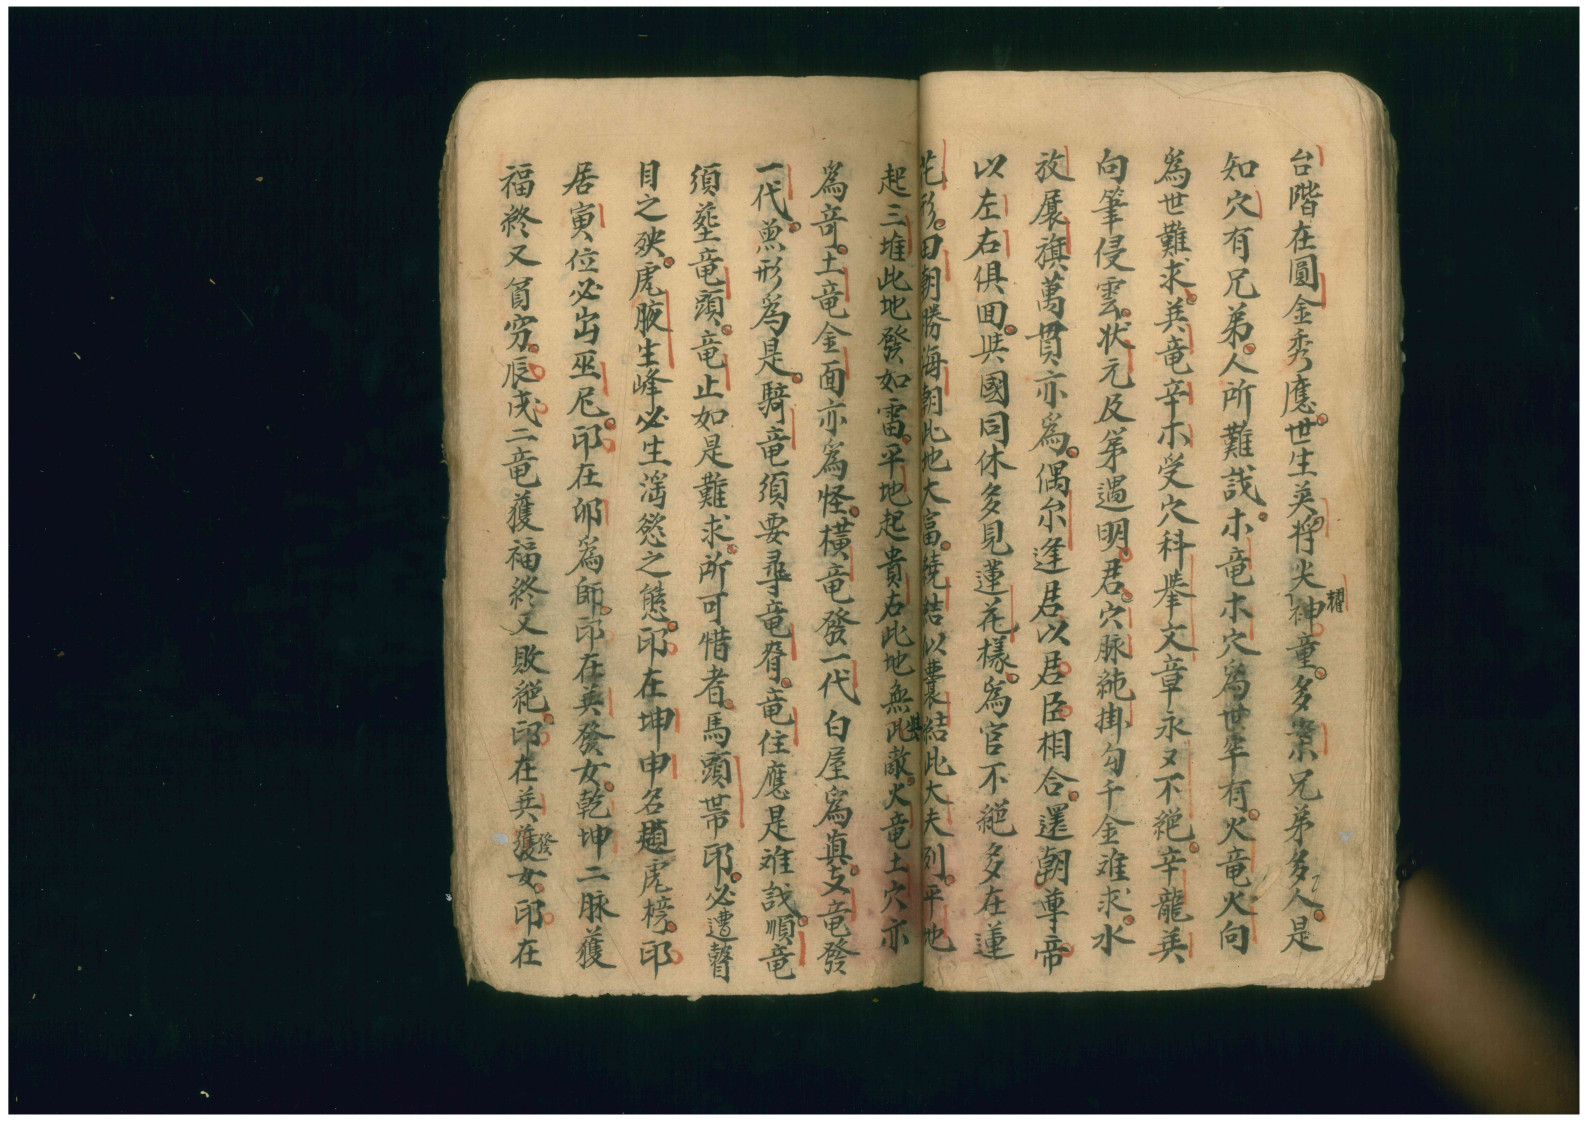 台階在圓金秀應世生英將尖神童多業兄弟多人是
擢
知穴有兄弟人所難哉木竜木穴為世罕有火竜火向
為世難求巽竜辛木受穴科舉文章永又不絕辛龍巽
向筆侵雲状元及第過明君穴脉純掛勾千金难求水
放展旗萬貫亦為偶尔逢君以君臣相合還朝尊帝
以左右俱囬與國同休多見蓮花樣為官不絕多在蓮
花形田朝勝海朝此地大富繞結以裹結此大夫列平地
起三堆此地發如雷平地起貴右此地無此敵火竜土穴亦
為竒土竜金面亦為怪橫竜發一代白屋為真支竜發
一代無形為是騎竜須要尋竜脊竜住應是难哉順竜
須塟竜頭竜止如是難求所可惜者馬頭帯印必遭瞽
目之殃虎腋生峰必生滛慾之態印在坤申名趙虎榜印
居寅位必出巫尼印在卯為師印在巽發女乾坤二脉獲
福終又貧穷辰戌二竜獲福終又敗絕印在巽獲女印在
發